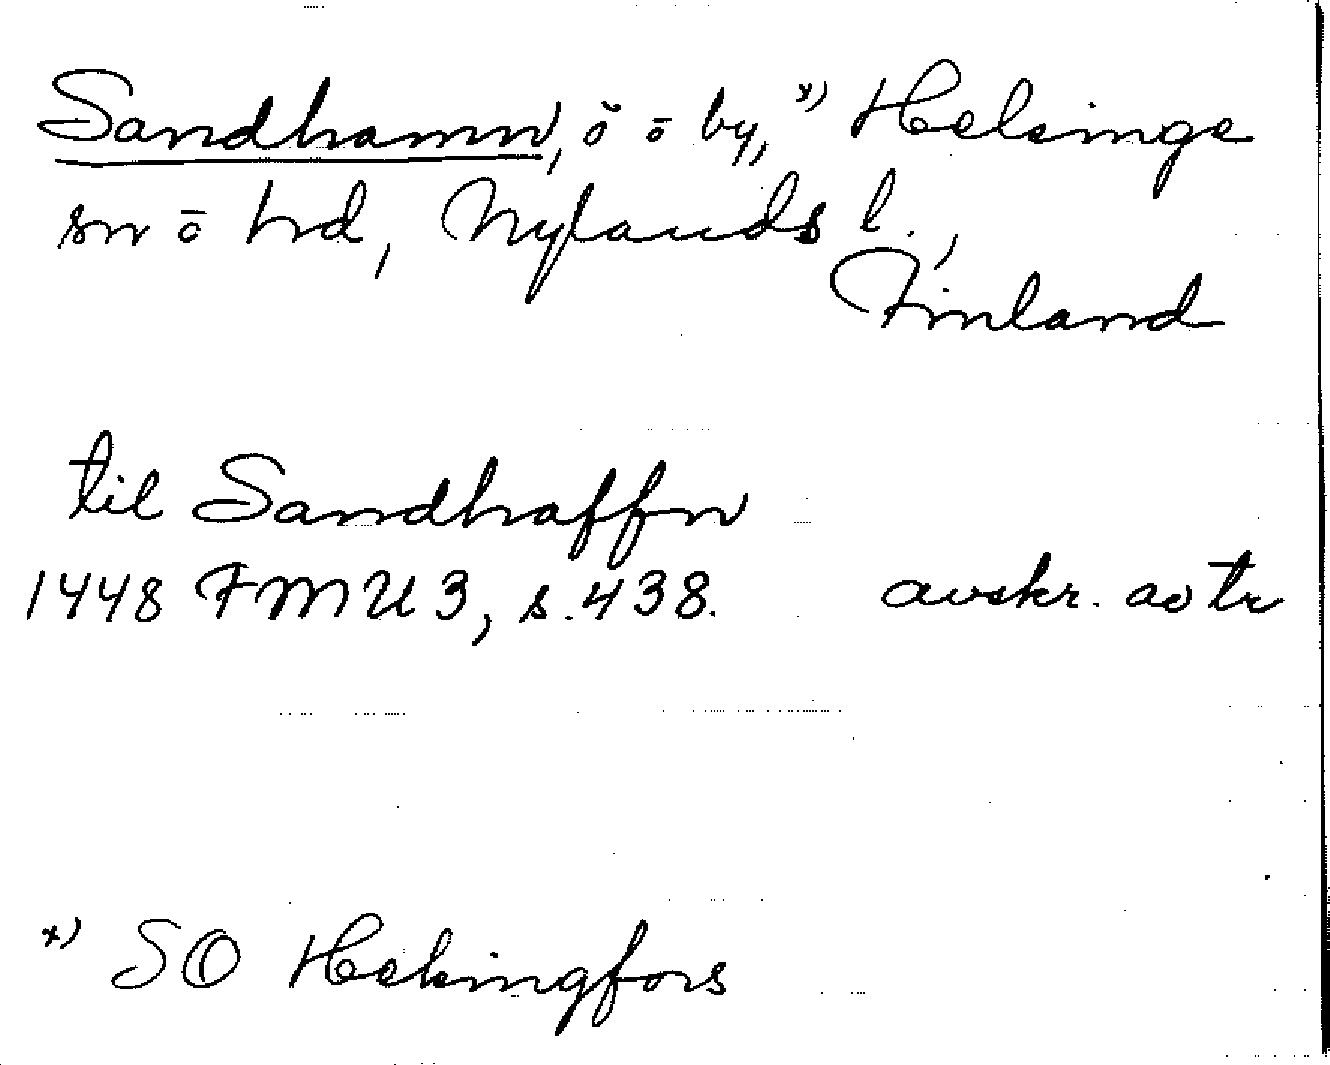 Sandhamn, ö ō by, *) Helsinge
sn ō hd, Nylands l.,
Finland
til Sandhaffn
1448 FMU 3, s. 438. avskr. av tr
*) SO Helsingfors